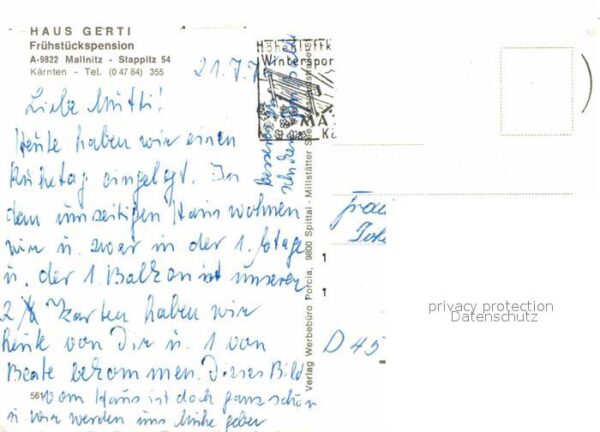 HAUS GERTI
Frühstückspension
A-9822 Mallnitz - Stappitz 54
Kärnten - Tel. (0 47 84) 355
21.7.7
Höhenluftk
Winterspor
MA
Kä
Liebe Mutti!
Heute haben wir einen
Ruhetag eingelegt. In
dem umseitigen Haus wohnen
wir u. zwar in der 1. Etage
u. der 1. Balkon ist unserer
2 Karten haben wir
heute von Dir u. 1 von
Beate bekommen. Dieses Bild
vom Haus ist doch ganz schön
u. wir werden uns Mühe geben
561
Verlag Werbebüro Porcia, 9800 Spittal - Millstätter
Frau
1
1
D 45
privacy protection
Datenschutz